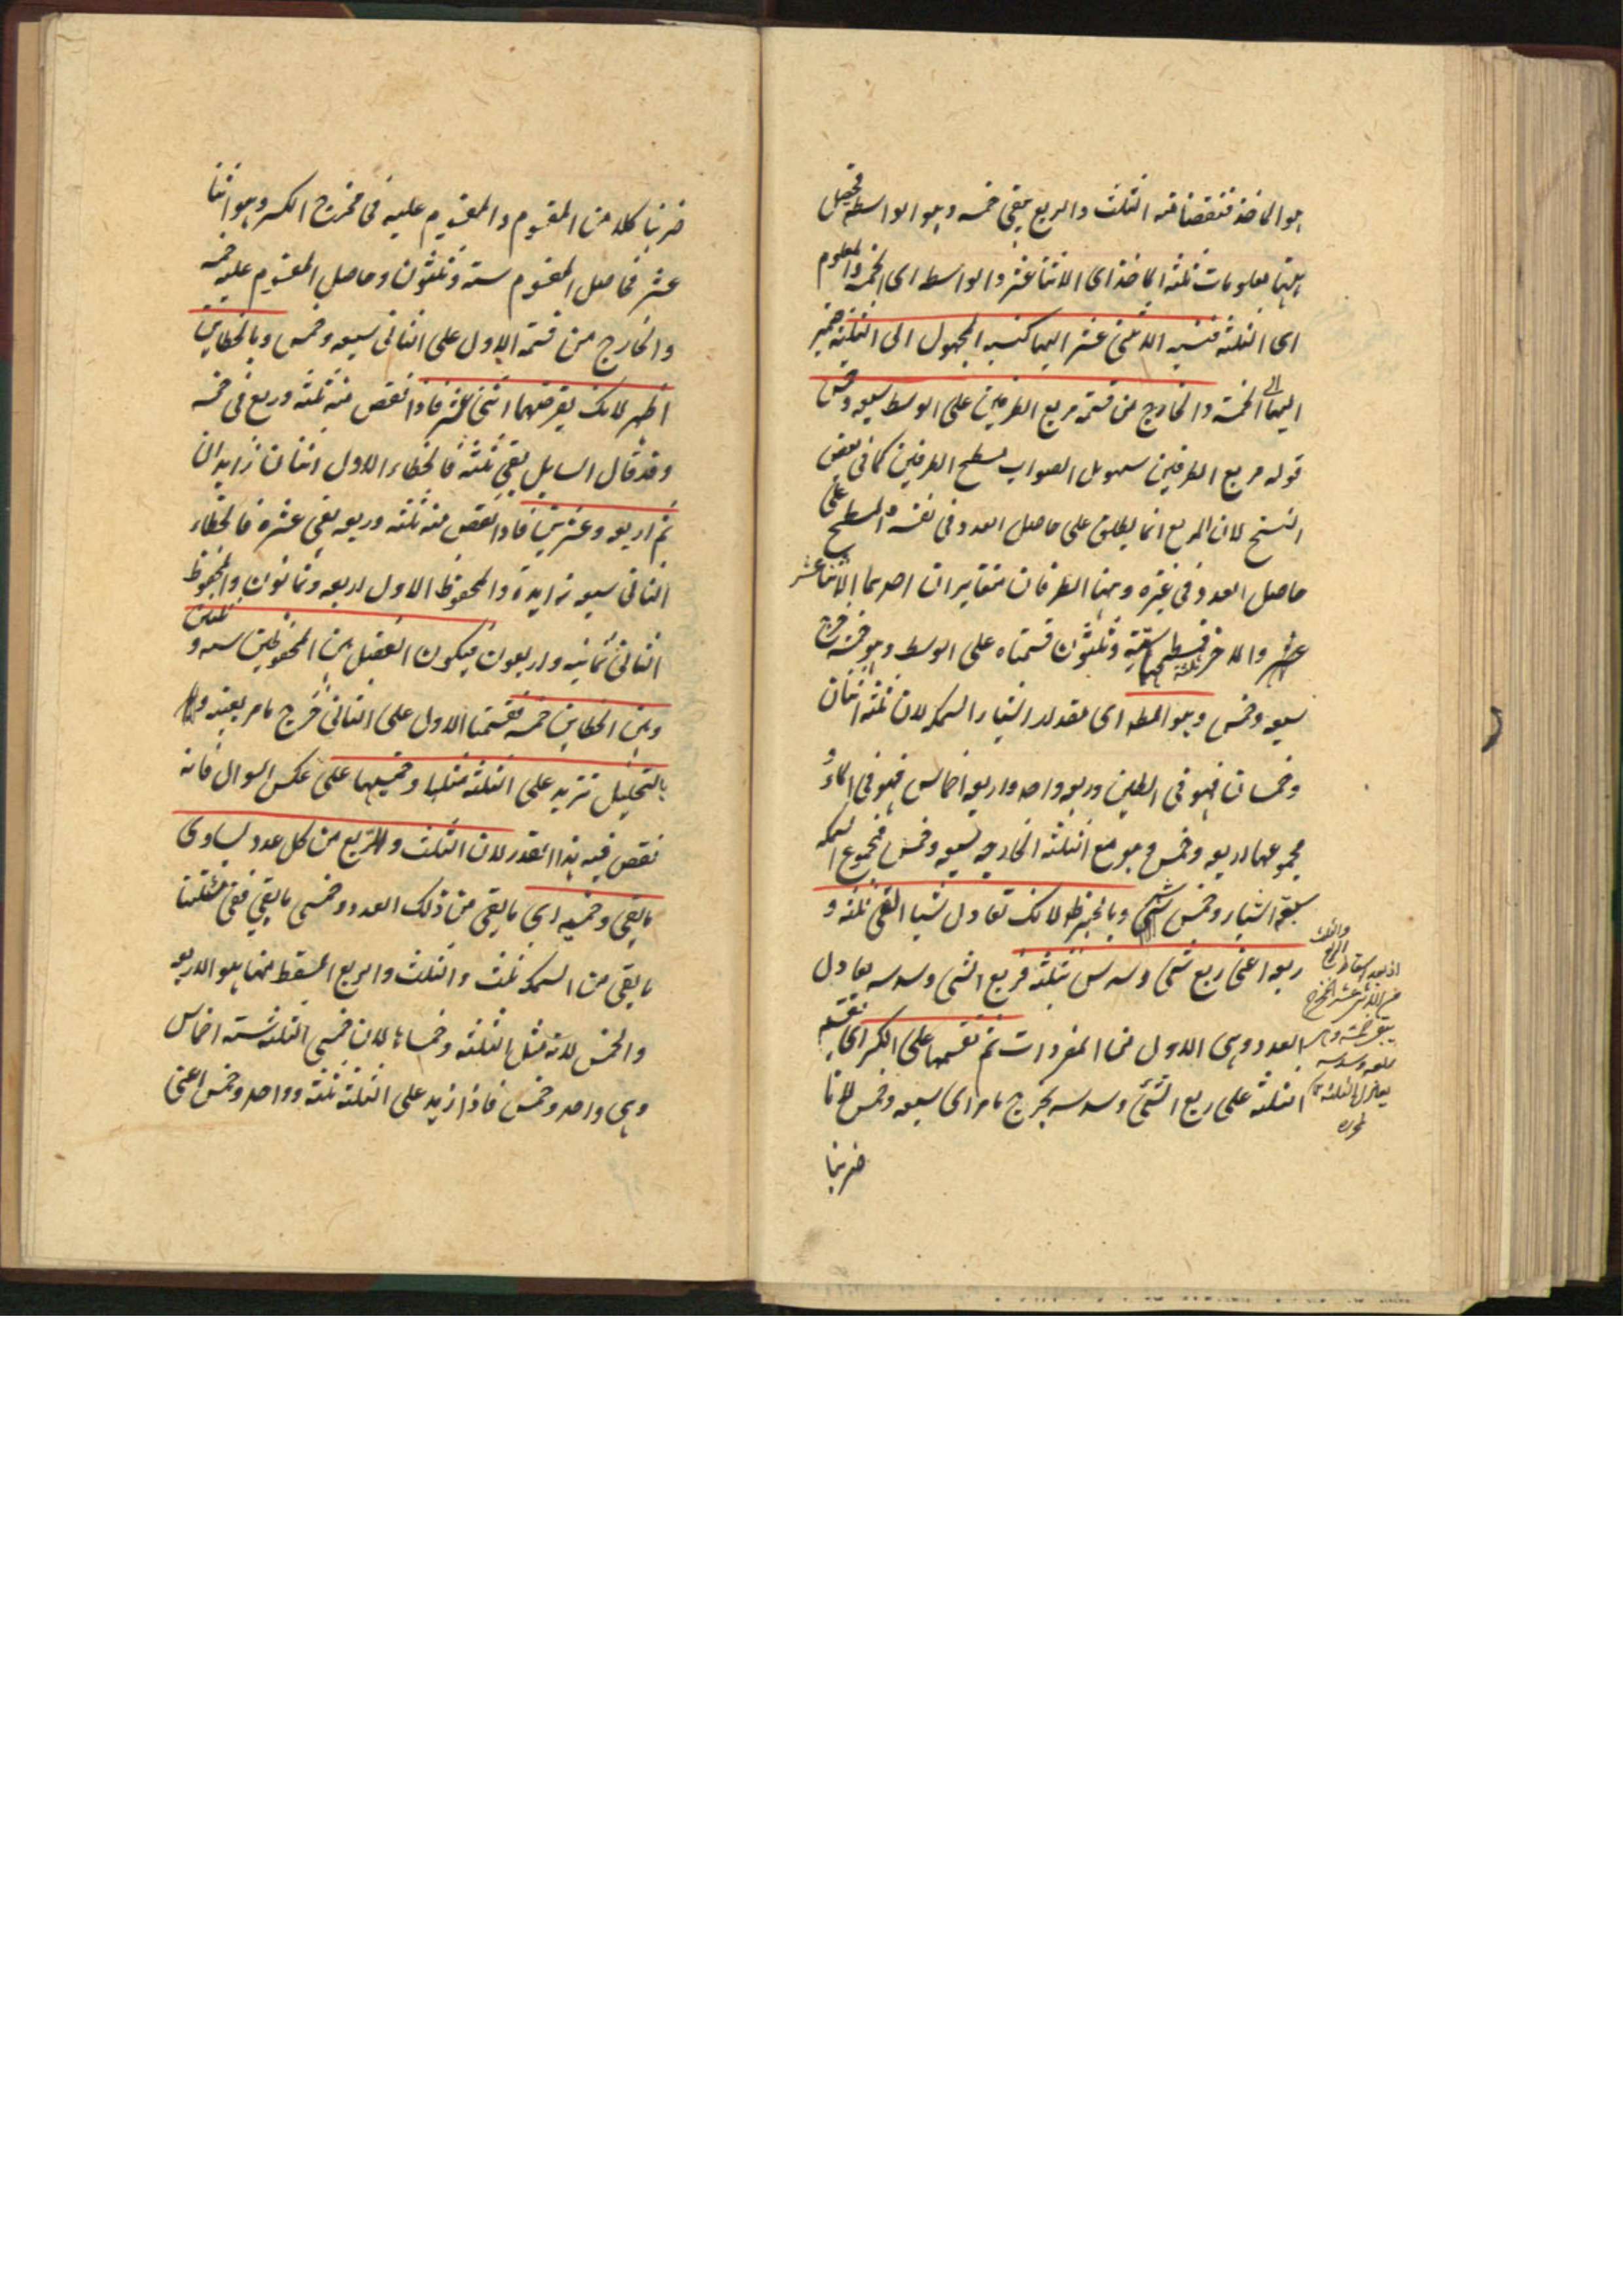 هو الماخذ فنقصنا منه الثلث والربع بقي خمسه وهو الواسطه فحصل
ههنا معلومات ثلثه الماخذ اى الاثنا عشر والواسطه اى الخمسه والمعلوم
اى الثلثه فنسبه الاثنى عشر اليها كنسبه المجهول الى الثلثه ضمير
اليها الى الخمسة والخارج من قسمة مربع الطرفين على الوسط سبعه وخمس
قوله مربع الطرفين سهو بل الصواب مسطح الطرفين كما فى بعض
النسخ لان المربع انما يطلق على حاصل العدد فى نفسه والمسطح على
حاصل العدد فى غيره وههنا الطرفان متغايران احدهما الاثنا عشر
والاخر ثلثة فمسطحهما ستة وثلثون قسمناه على الوسط وهو خمسة خرج
سبعه وخمس وهو المط اى مقدار اشبار السمكه لان ثلثه اثنان
وخمسان فهو فى الطين وربعه واحد واربعه اخماس فهو فى الماء و
مجموعهما اربعه وخمس وهو مع الثلثه الخارجه سبعه وخمس فمجموع السمكه
سبعة اشبار وخمس شبر وبالجبر ظ لانك تعادل شيا القى ثلثه و
ربعه اعنى ربع شئ وسدس بثلثه فربع الشئ وسدسه يعادل
العدد وهى الاول من المفردات ثم تقسمها على الكسر اى نقسم
الثلثه على ربع الشئ وسدسه يخرج مامر اى سبعه وخمس لانا
ضربنا
اذ بعد اسقاط الثلث والربع
من الاثنى عشر المخرج
يبقى خمسة وهى
ربعه وسدسه
ضربنا كلا من المقسوم والمقسوم عليه فى مخرج الكسر وهو اثنا
عشر فحاصل المقسوم ستة وثلثون وحاصل المقسوم عليه خمسه
والخارج من قسمة الاول على الثانى سبعه وخمس وبالخطاين
اظهر لانك تفرضهما اثنى عشر فاذا نقص منه ثلثه وربعه بقى خمسه
وقد قال السايل بقى ثلثة فالخطاء الاول اثنان زايدان
ثم اربعه وعشرين فاذا نقص منه ثلثه وربعه بقى عشره فالخطاء
الثانى سبعه زايدة والمحفوظ الاول اربعه وثمانون والمحفوظ
الثانى ثمانيه واربعون فيكون الفضل بين المحفوظين سته وثلثين
وبين الخطاين خمسه فقسمنا الاول على الثانى خرج مامر بعينه
بالتحليل تزيد على الثلثة مثلها وخمسيها على عكس السوال فانه
نقص فيه هذا القدر لان الثلث والربع من كل عدد يساوى
ما بقى وخمسيه اى ما بقى من ذلك العدد وخمسى ما بقى ففى مسئلتنا
ما بقى من السمكه ثلث والثلث والربع المسقط منها هو الاربعه
والخمس لانه مثل الثلثه وخمساها لان خمسى الثلثه ستة اخماس
وهى واحد وخمس فاذا زيد على الثلثة ثلثة وواحد وخمس اعنى